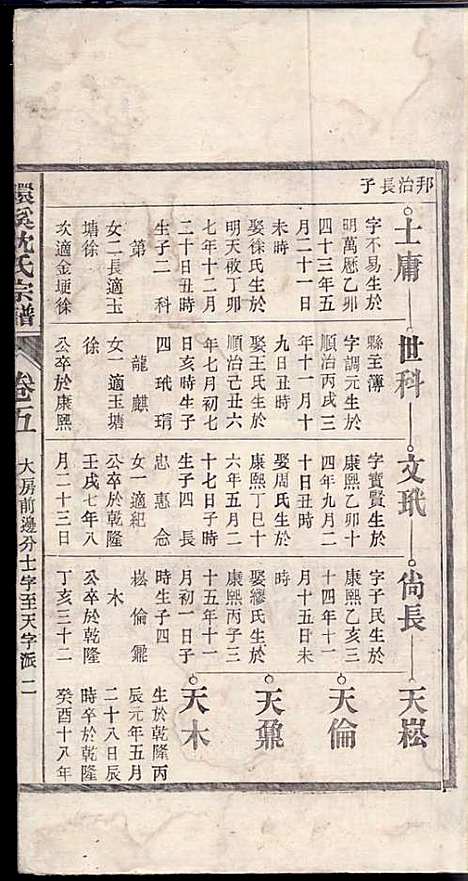 邦治長子
士庸
字不易生於
明萬厯乙卯
四十三年五
月二十一日
未時
娶徐氏生於
明天啟丁卯
七年十二月
二十日丑時
生子二 科
第
女二長適玉
塘徐
次適金埂徐
世科
縣主簿
字調元生於
順治丙戌三
年十一月十
九日丑時
娶王氏生於
順治己丑六
年七月初七
日亥時生子
四 玳 瑁
龍 麒
女一適玉塘
徐
公卒於康熙
文玳
字實賢生於
康熙乙卯十
四年九月二
十日丑時
娶周氏生於
康熙丁巳十
六年五月二
十七日子時
生子四 長
忠 惠 念
女一適紀
公卒於乾隆
壬戌七年八
月二十三日
尙長
字子民生於
康熙乙亥三
十四年十一
月十五日未
時
娶繆氏生於
康熙丙子三
十五年十一
月初一日子
時生子四
崧 倫 鼐
木
公卒於乾隆
丁亥三十二
天崧
天倫
天鼐
天木
生於乾隆丙
辰元年五月
二十八日辰
時卒於乾隆
癸酉十八年
環溪沈氏宗譜
卷五
大房前邊分士字至天字派 二